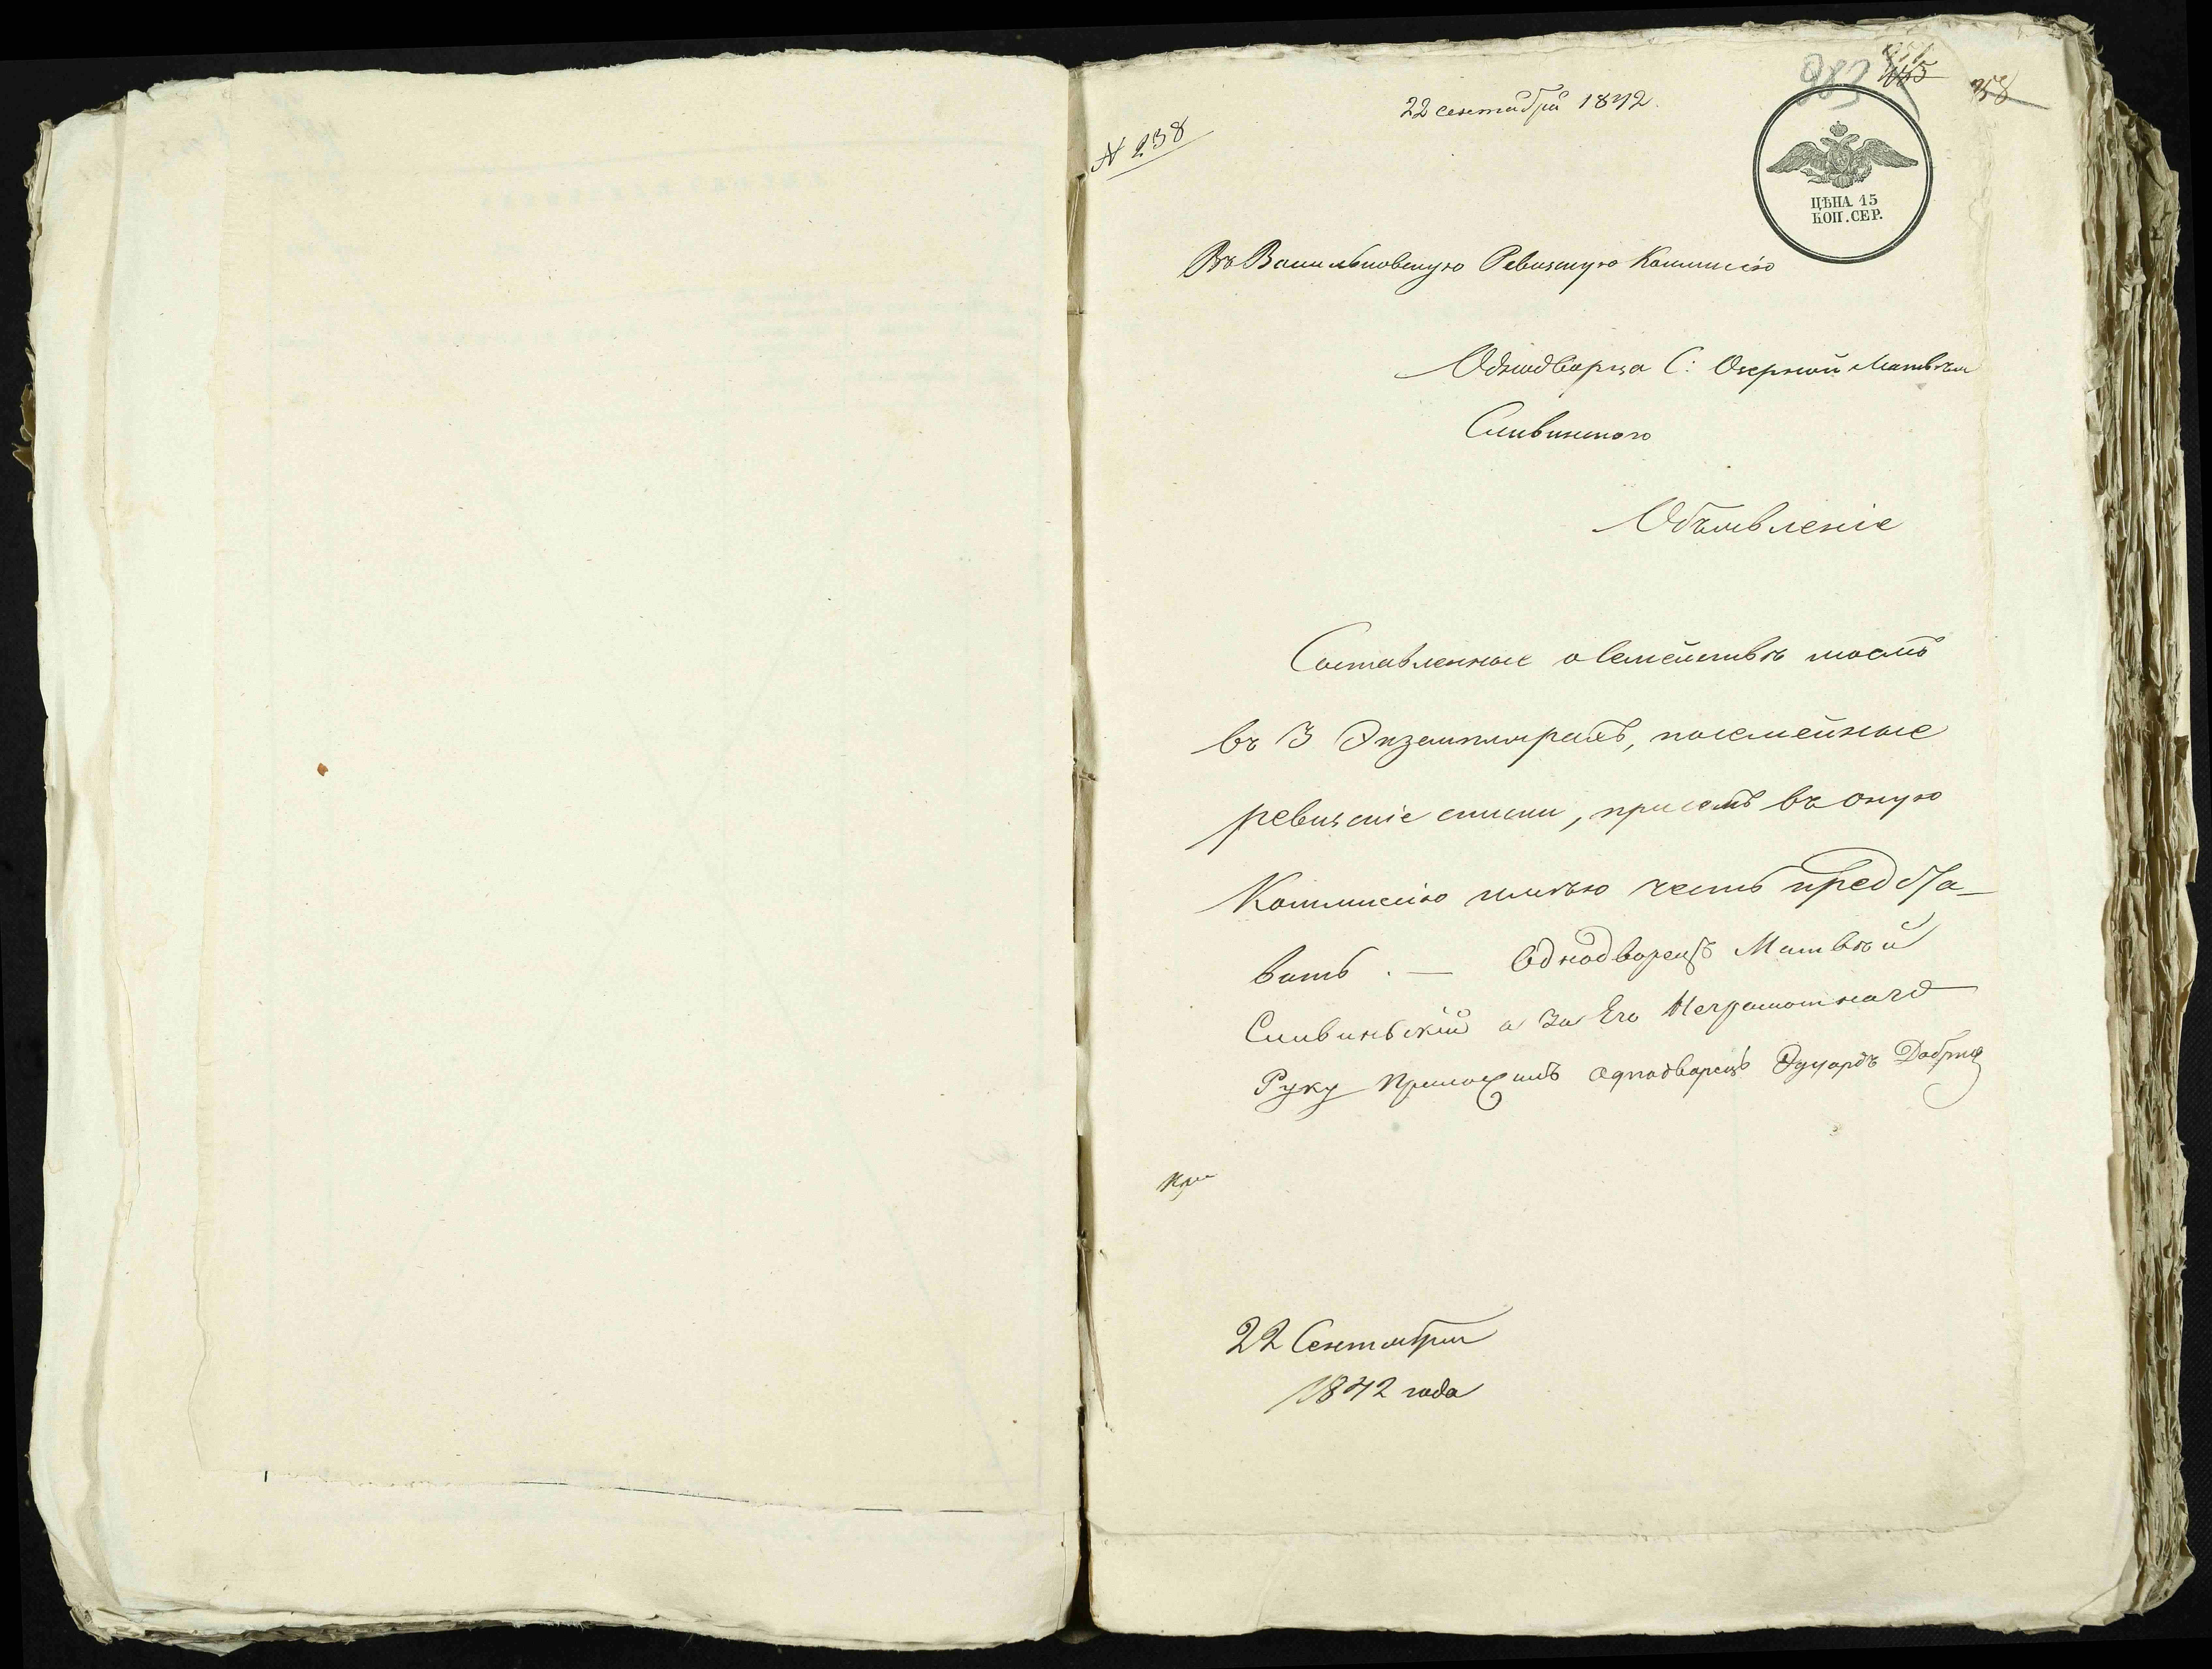 983
22 сентября 1842.
№ 238
ЦѢНА 15
КОП. СЕР.
Въ Васильковскую Ревизкую Коммисію
Однодворца С: Озерной Матвѣя
Сливинского
Объявленіе
Составленные о Семействѣ моемъ
въ 3 Экземплярахъ, посемейные
ревизкіе списки, присемъ въ оную
Коммисію имѣю честь предста-
вить. — Однодворецъ Матвѣй
Сливинскій а За Его Неграмотнаго
Руку Приложилъ однодворецъ Эдуардъ
22 Сентября
1842 года